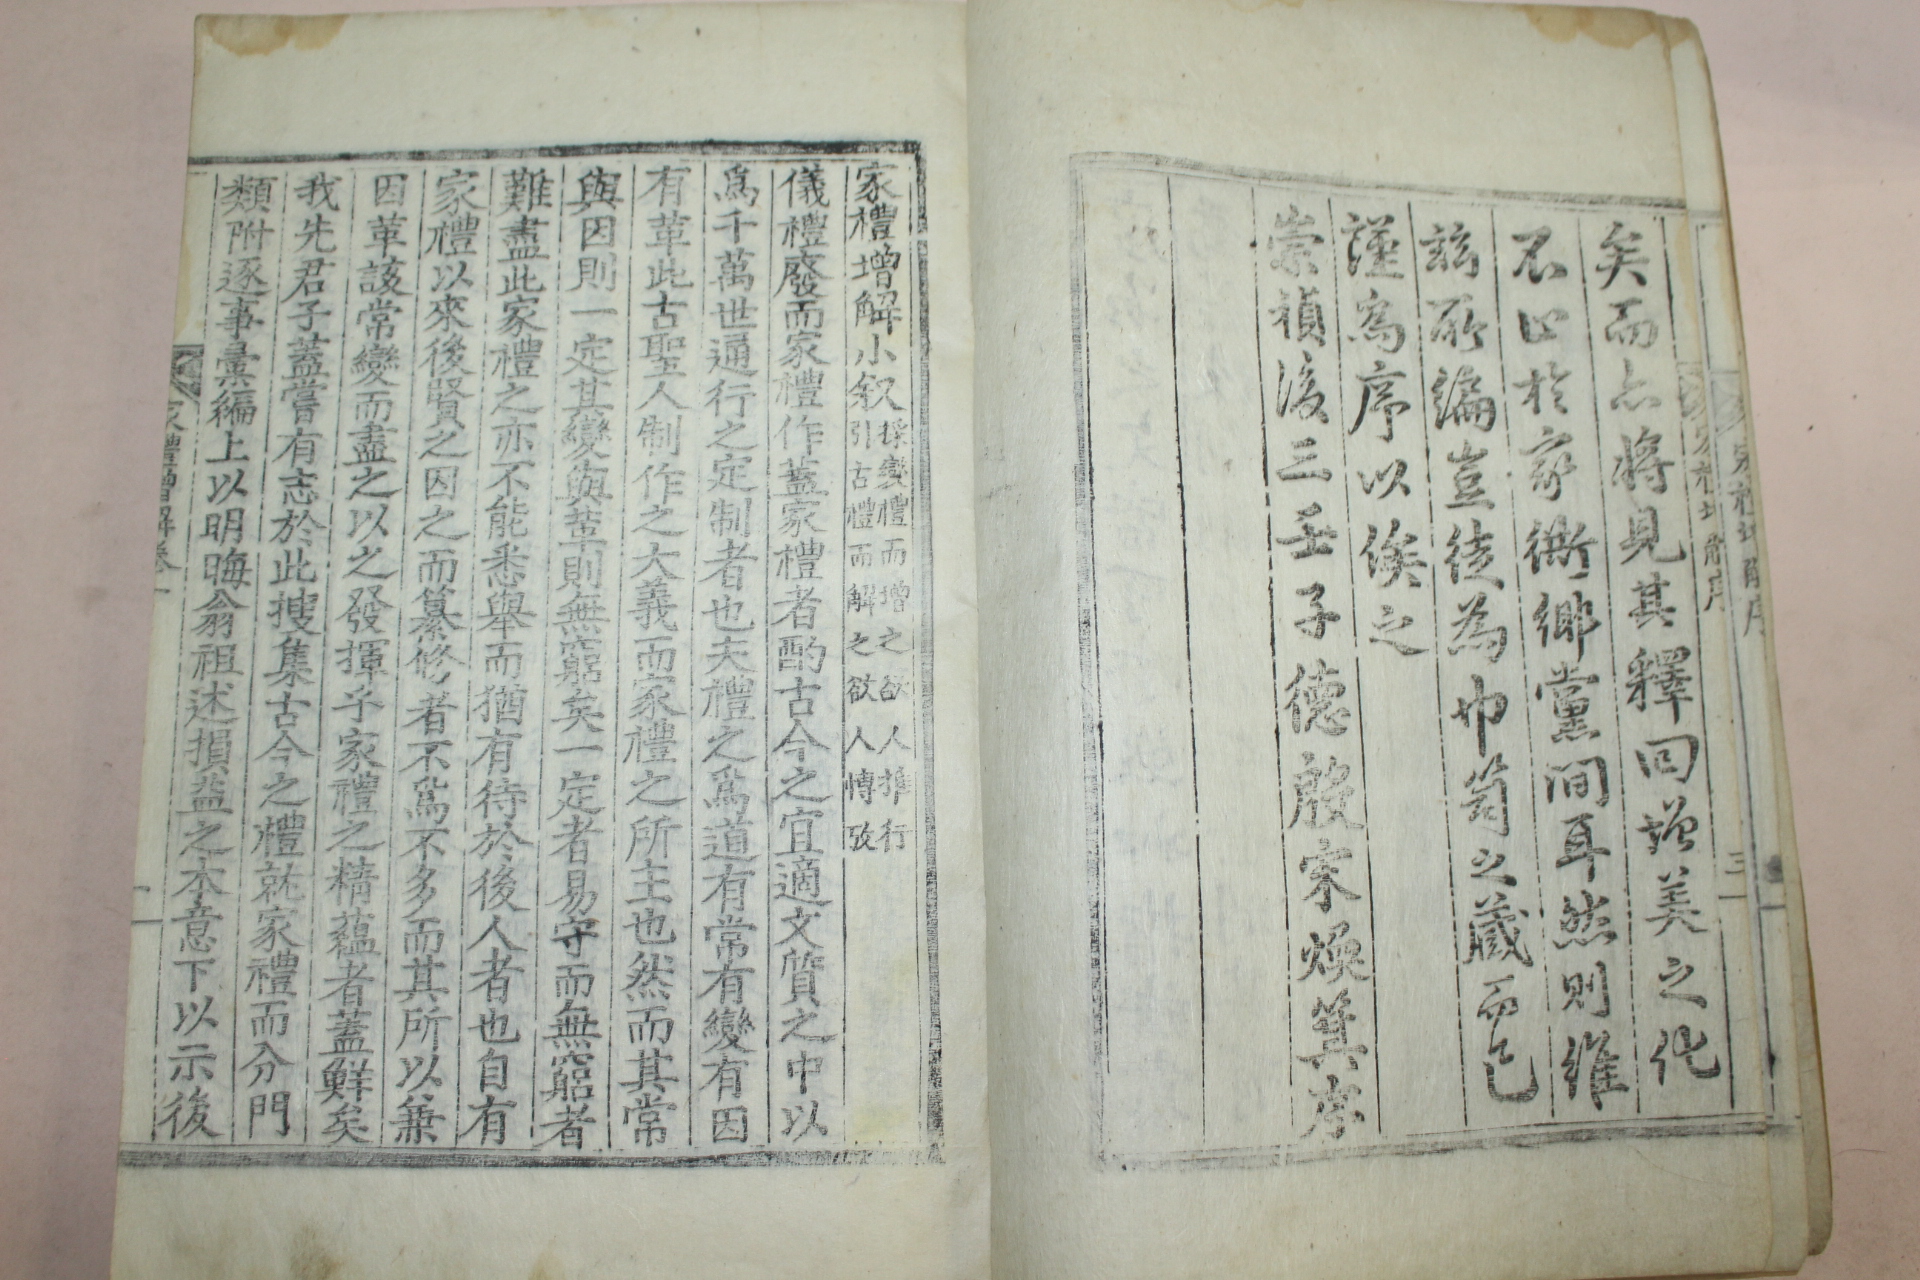 矣而亦將見其釋回增美之化
不止於家衖鄉黨間耳然則維
玆所編豈徒為巾笥之藏而已
謹為序以俟之
崇禎後三壬子德殷宋煥箕序
家禮增解小叙 採變禮而增之欲人推行
引古禮而解之欲人博攷
儀禮廢而家禮作蓋家禮者酌古今之宜適文質之中以
爲千萬世通行之定制者也夫禮之爲道有常有變有因
有革此古聖人制作之大義而家禮之所主也然而其常
與因則一定其變與革則無窮矣一定者易守而無窮者
難盡此家禮之亦不能悉舉而猶有待於後人者也自有
家禮以來後賢之因之而纂修者不爲不多而其所以兼
因革該常變而盡之以之發揮乎家禮之精蘊者蓋鮮矣
我先君子蓋嘗有志於此搜集古今之禮就家禮而分門
類附逐事彙編上以明晦翁祖述損益之本意下以示後
家禮增解卷一
一
家禮增解序
三